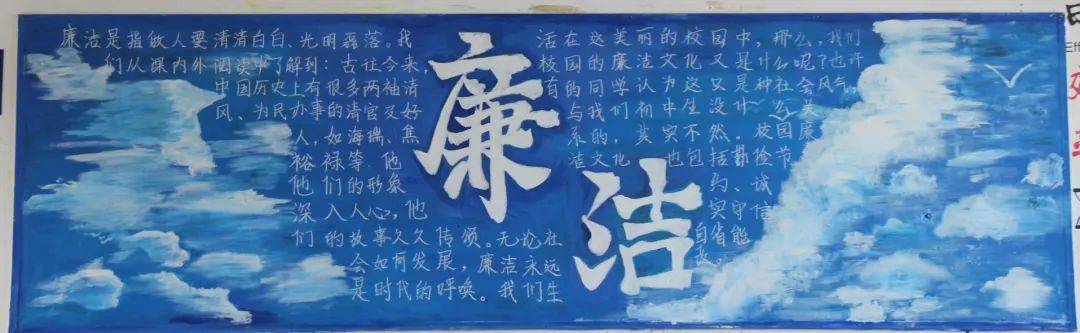 廉洁
廉洁是指做人要清清白白、光明磊落。我
们从课内外阅读中了解到：古往今来，
中国历史上有很多两袖清
风、为民办事的清官及好
人，如海瑞、焦
裕禄等，他
他们的形象
深入人心，他
们的故事久久传颂。无论社
会如何发展，廉洁永远
是时代的呼唤。我们生
活在这美丽的校园中，那么，我们
校园的廉洁文化又是什么呢？也许
有的同学认为这又是种社会风气，
与我们初中生没什么关
系的，其实不然。校园廉
洁文化也包括勤俭节
约、诚
实守信
自省能